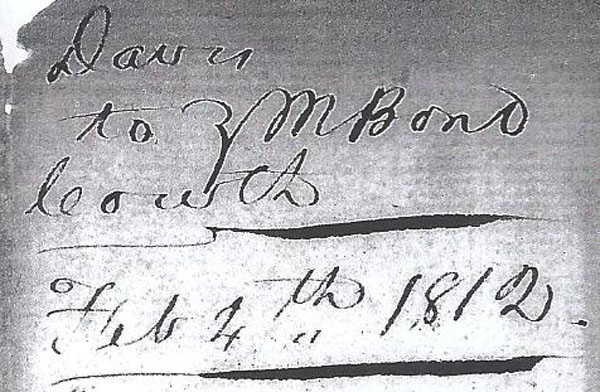 Davis
to M Bond
Feb 4th 1812.